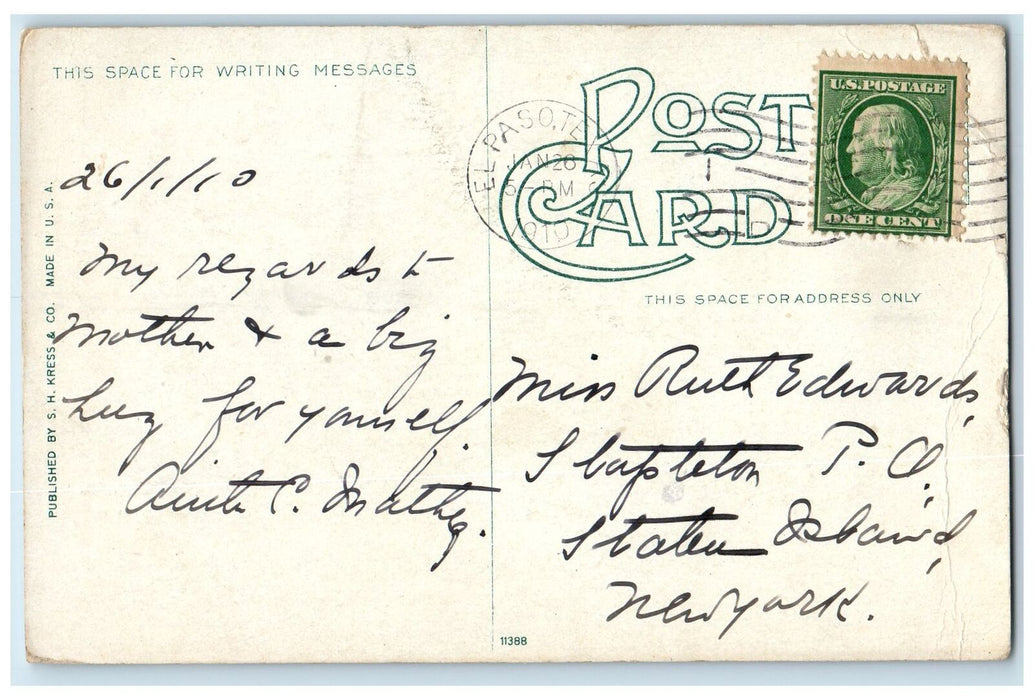 THIS SPACE FOR WRITING MESSAGES
26/1/10
My regards to
Mother & a big
hug for yourself.
C.
PUBLISHED BY S. H. KRESS & CO. MADE IN U. S. A.
POST
CARD
EL PASO, TEX
JAN 26
5 - PM
1910
U.S. POSTAGE
ONE CENT
THIS SPACE FOR ADDRESS ONLY
Miss Ruth Edwards,
Stapleton P. O.,
Staten Island,
New York.
11388